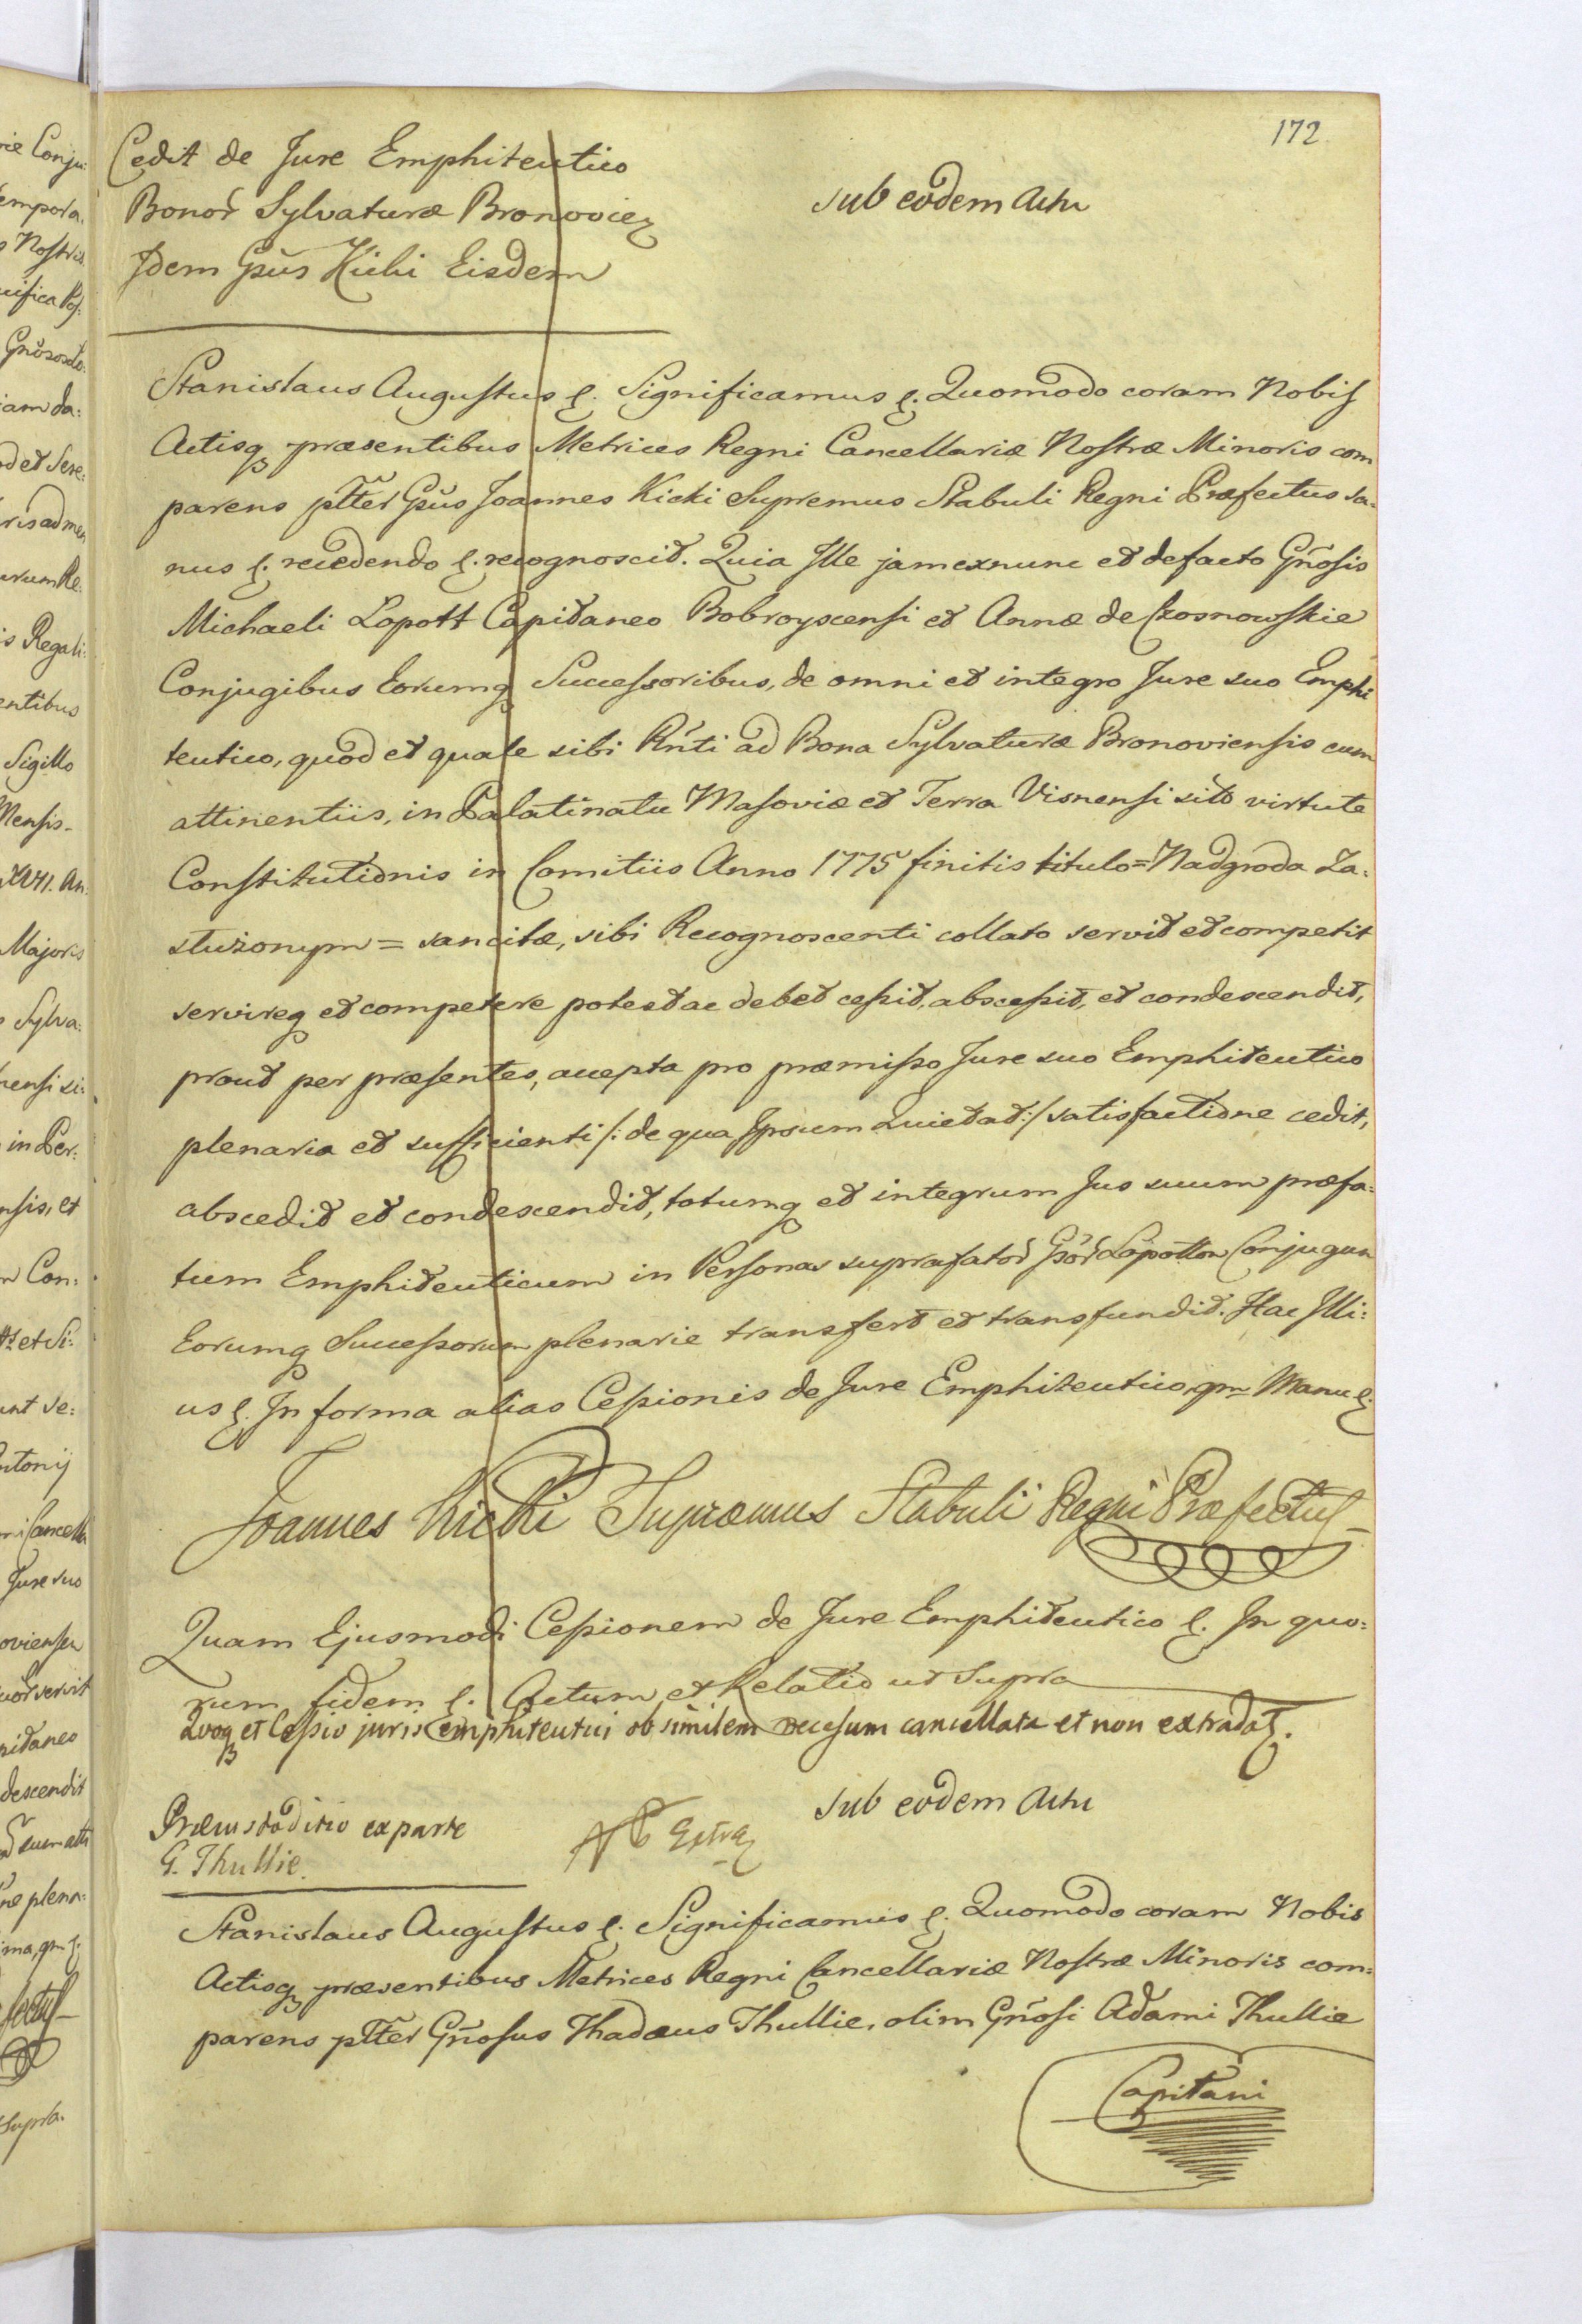 172
Cedit de Jure Emphiteutico
Bonor Sylvaturæ Bronoviez
Sub eodem Actu
Idem Gsus Kicki Eisdem
Stanislaus Augustus &. Significamus &. Quomodo coram Nobis
Actisq præsentibus Metrices Regni Cancellariæ Nostræ Minoris com
parens pltter Gsus Joannes Kicki Supremus Stabuli Regni Præfectus sa=
nus &. recedendo &. recognoscit. Quia Ille jam exnunc et defacto Gñosis
Michaeli Lopott Capitaneo Bobroyscensi et Annæ de Czosnowskie
Conjugibus Eorumq Successoribus, de omni et integro Jure suo Emphi
teutico, quod et quale sibi Rñti ad Bona Sylvaturæ Bronoviensis cum
attinentiis, in Palatinatu Masoviæ et Terra Visnensi sito virtute
Constitutionis in Comitiis Anno 1775 finitis titulo=Nadgroda Za=
služonym= sancitæ, sibi Recognoscenti collato servit et competit
servireq et competere potest ac debet cessit, abscessit, et condescendit,
prout per præsentes, accepta pro præmisso Jure suo Emphiteutico
plenaria et sufficienti /: de qua Ipsum Quietat :/ satisfactione cedit,
abscedit et condescendit, totumq et integrum Jus suum præfa=
tum Emphiteuticum in Personas suprafator Gsor Lopottow Conjugum
Eorumq Successorum plenarie transfert et transfundit. Hac Illi=
us &. In forma alias Cessionis de Jure Emphiteutico, qm Manu &.
Joannes Kicki Supræmus Stabuli Regni Præfectus
Quam Ejusmodi Cessionem de Jure Emphiteutico &. In quo=
rum fidem &. Actum et Relatio ut Supra
Quoq et Cessio juris emphiteutici ob similem recessum cancellata et non extradat.
Sub eodem Actu
Præcustoditio ex parte
G. Thullie.
Stanislaus Augustus &. Significamus &. Quomodo coram Nobis
Actisq præsentibus Metrices Regni Cancellariæ Nostræ Minoris com=
parens pltter Gñosus Thadæus Thullie, olim Gñosi Adami Thullie
Capitani